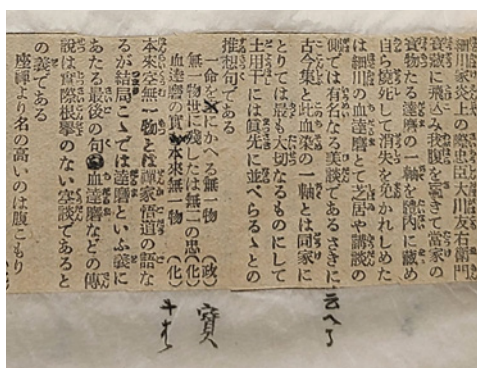 細川家炎上の際忠臣大川友右衛門
寶蔵に飛込み我腹を寛きて當家の
寶物たる達磨の一軸を體内に蔵め
自ら燒死して消失を免かれしめた
は細川の血達磨とて芝居や講談の
側では有名なる美談であるさきに云へる
古今集と此血染の一軸とは同家に
とりては最も大切なるものにして
土用干には眞先に並べらるゝとの
推想句である
一命をにかへる無一物(政)
無一物世に殘したは無二の忠(化)
血達磨の實本來無一物(化)
本來空無一物とは禪家悟道の語な
るが結局こゝでは達磨といふ義に
あたる最後の句血達磨などの傳
説は實際根擧のない空談であると
の義である
座禪より名の高いのは腹こもり
寶